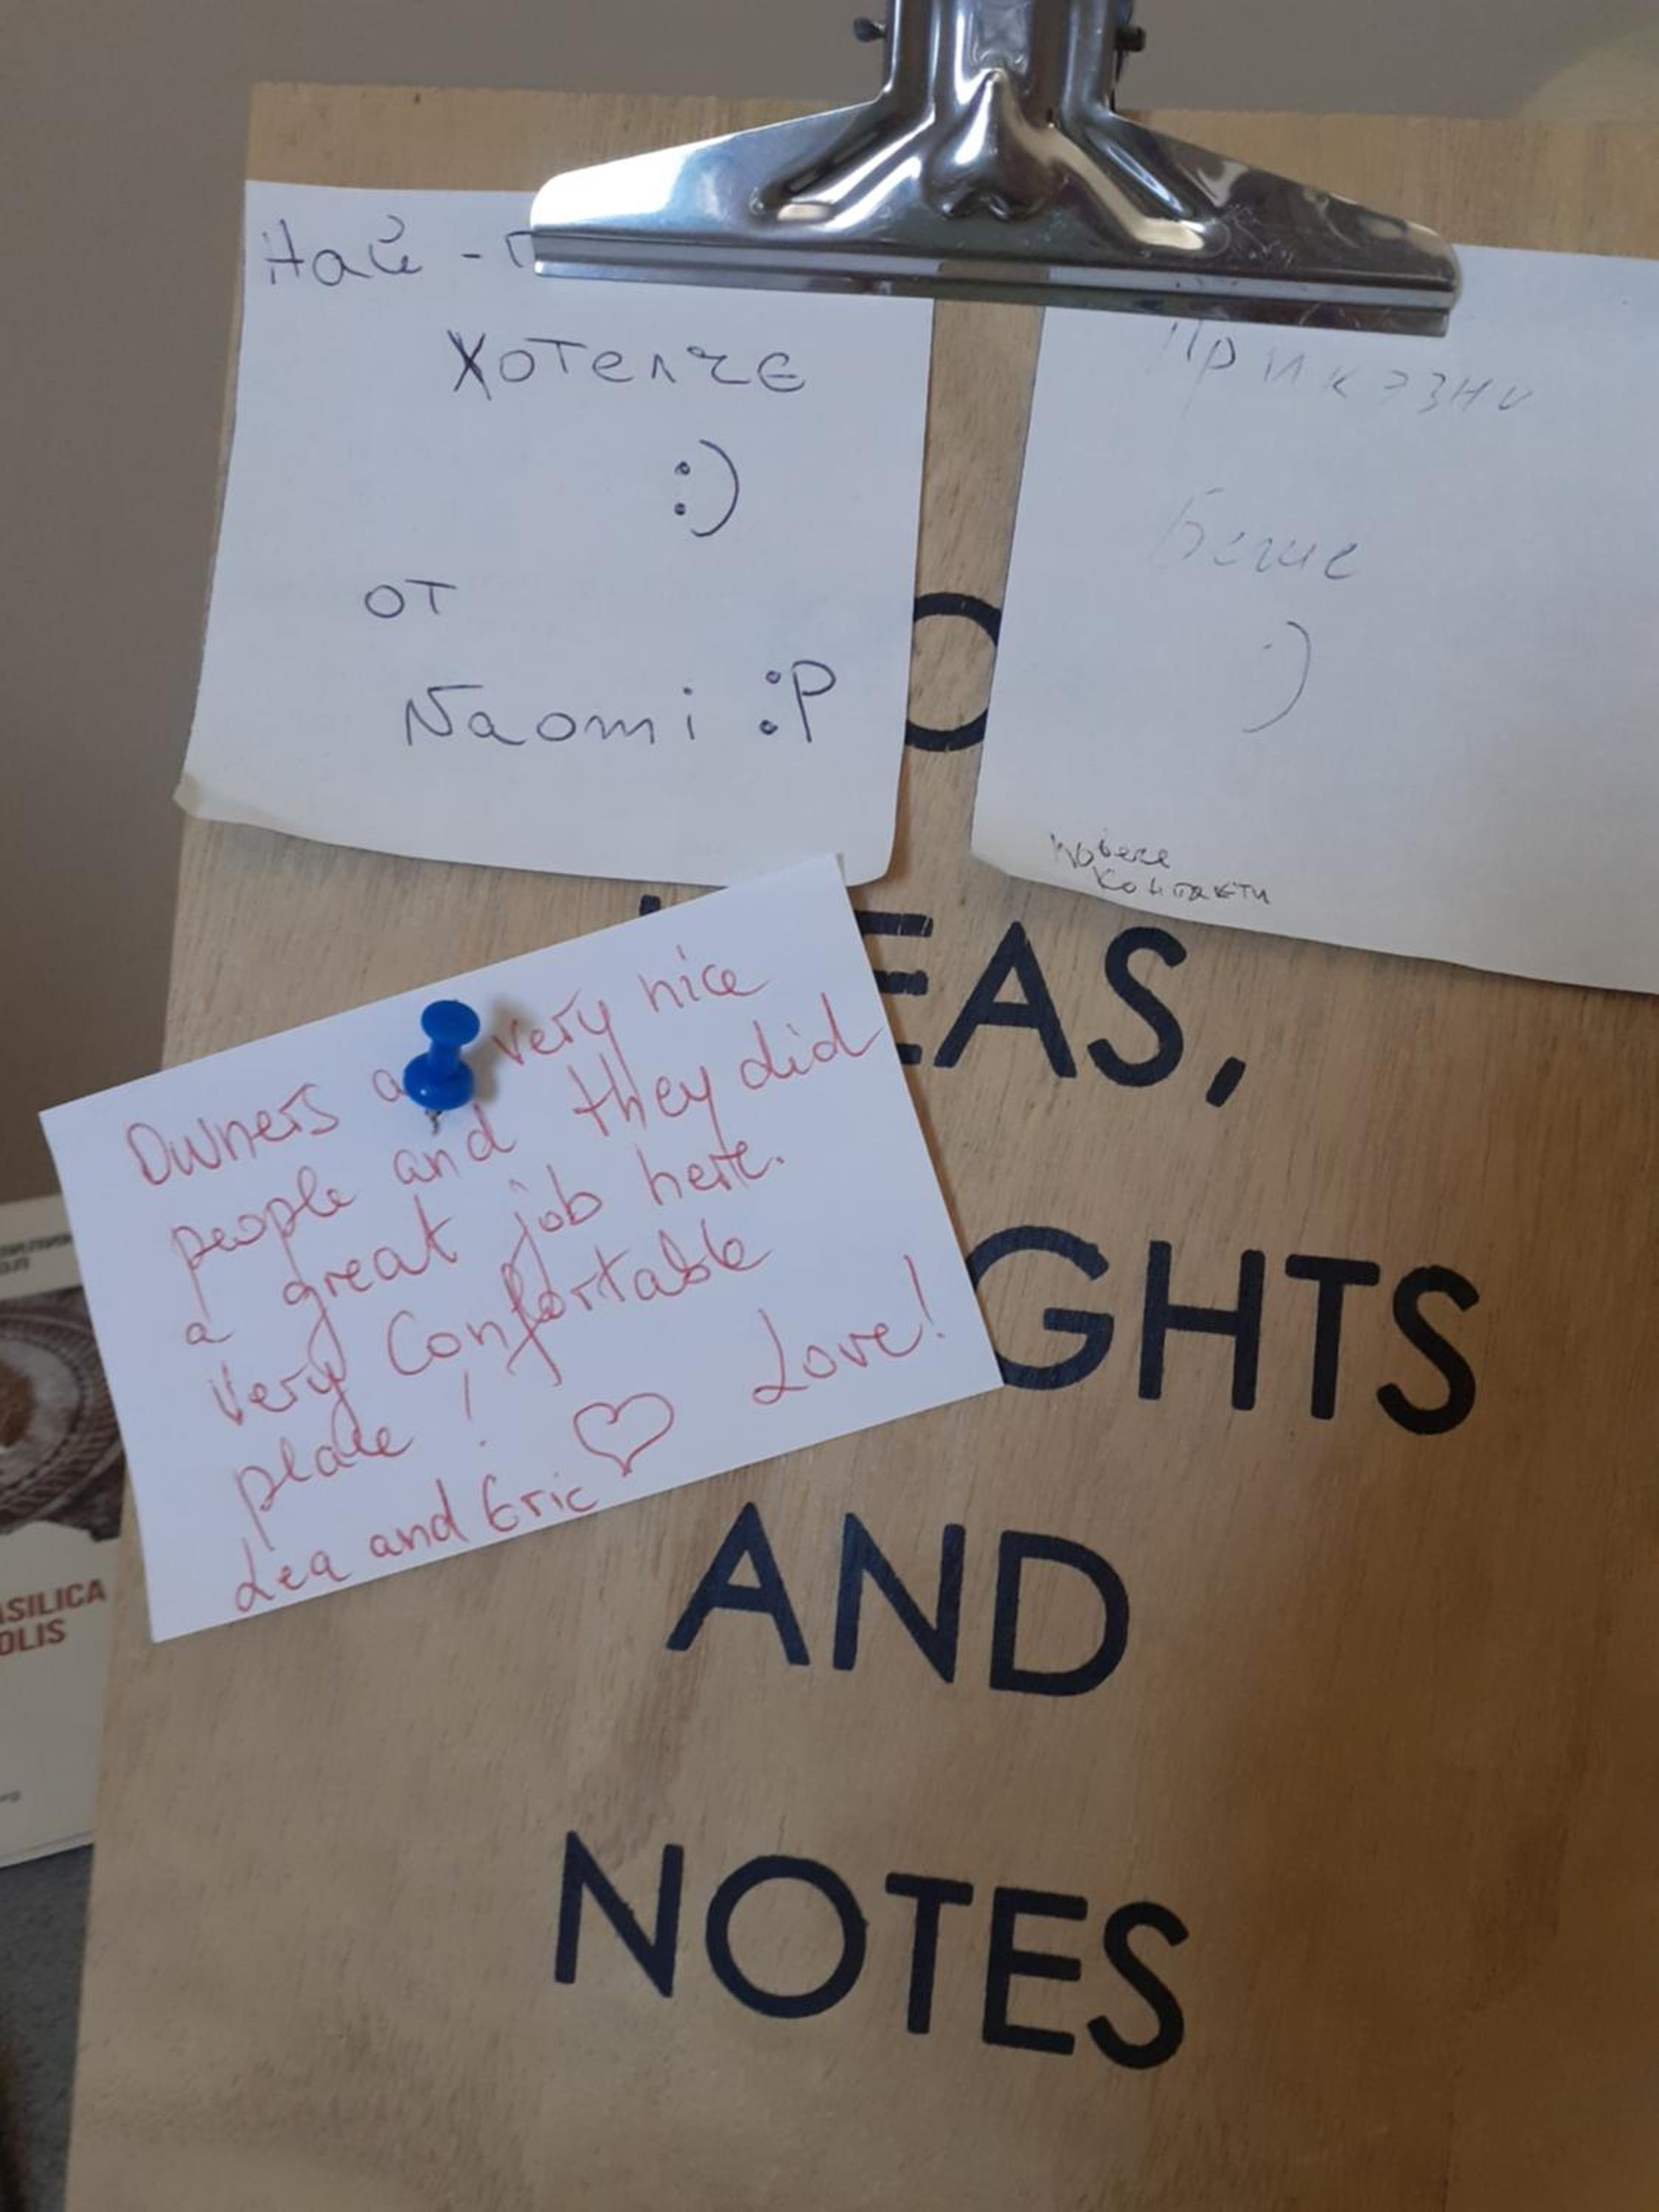 Най - П
Хотелче
:)
от
Naomi :P
Приказно
беше
:)
повече
контакти
Owners a very nice
people and they did
a great job here.
Very Confortable
place! Love!
Lea and Eric
EAS,
GHTS
AND
NOTES
ASILICA
OLIS